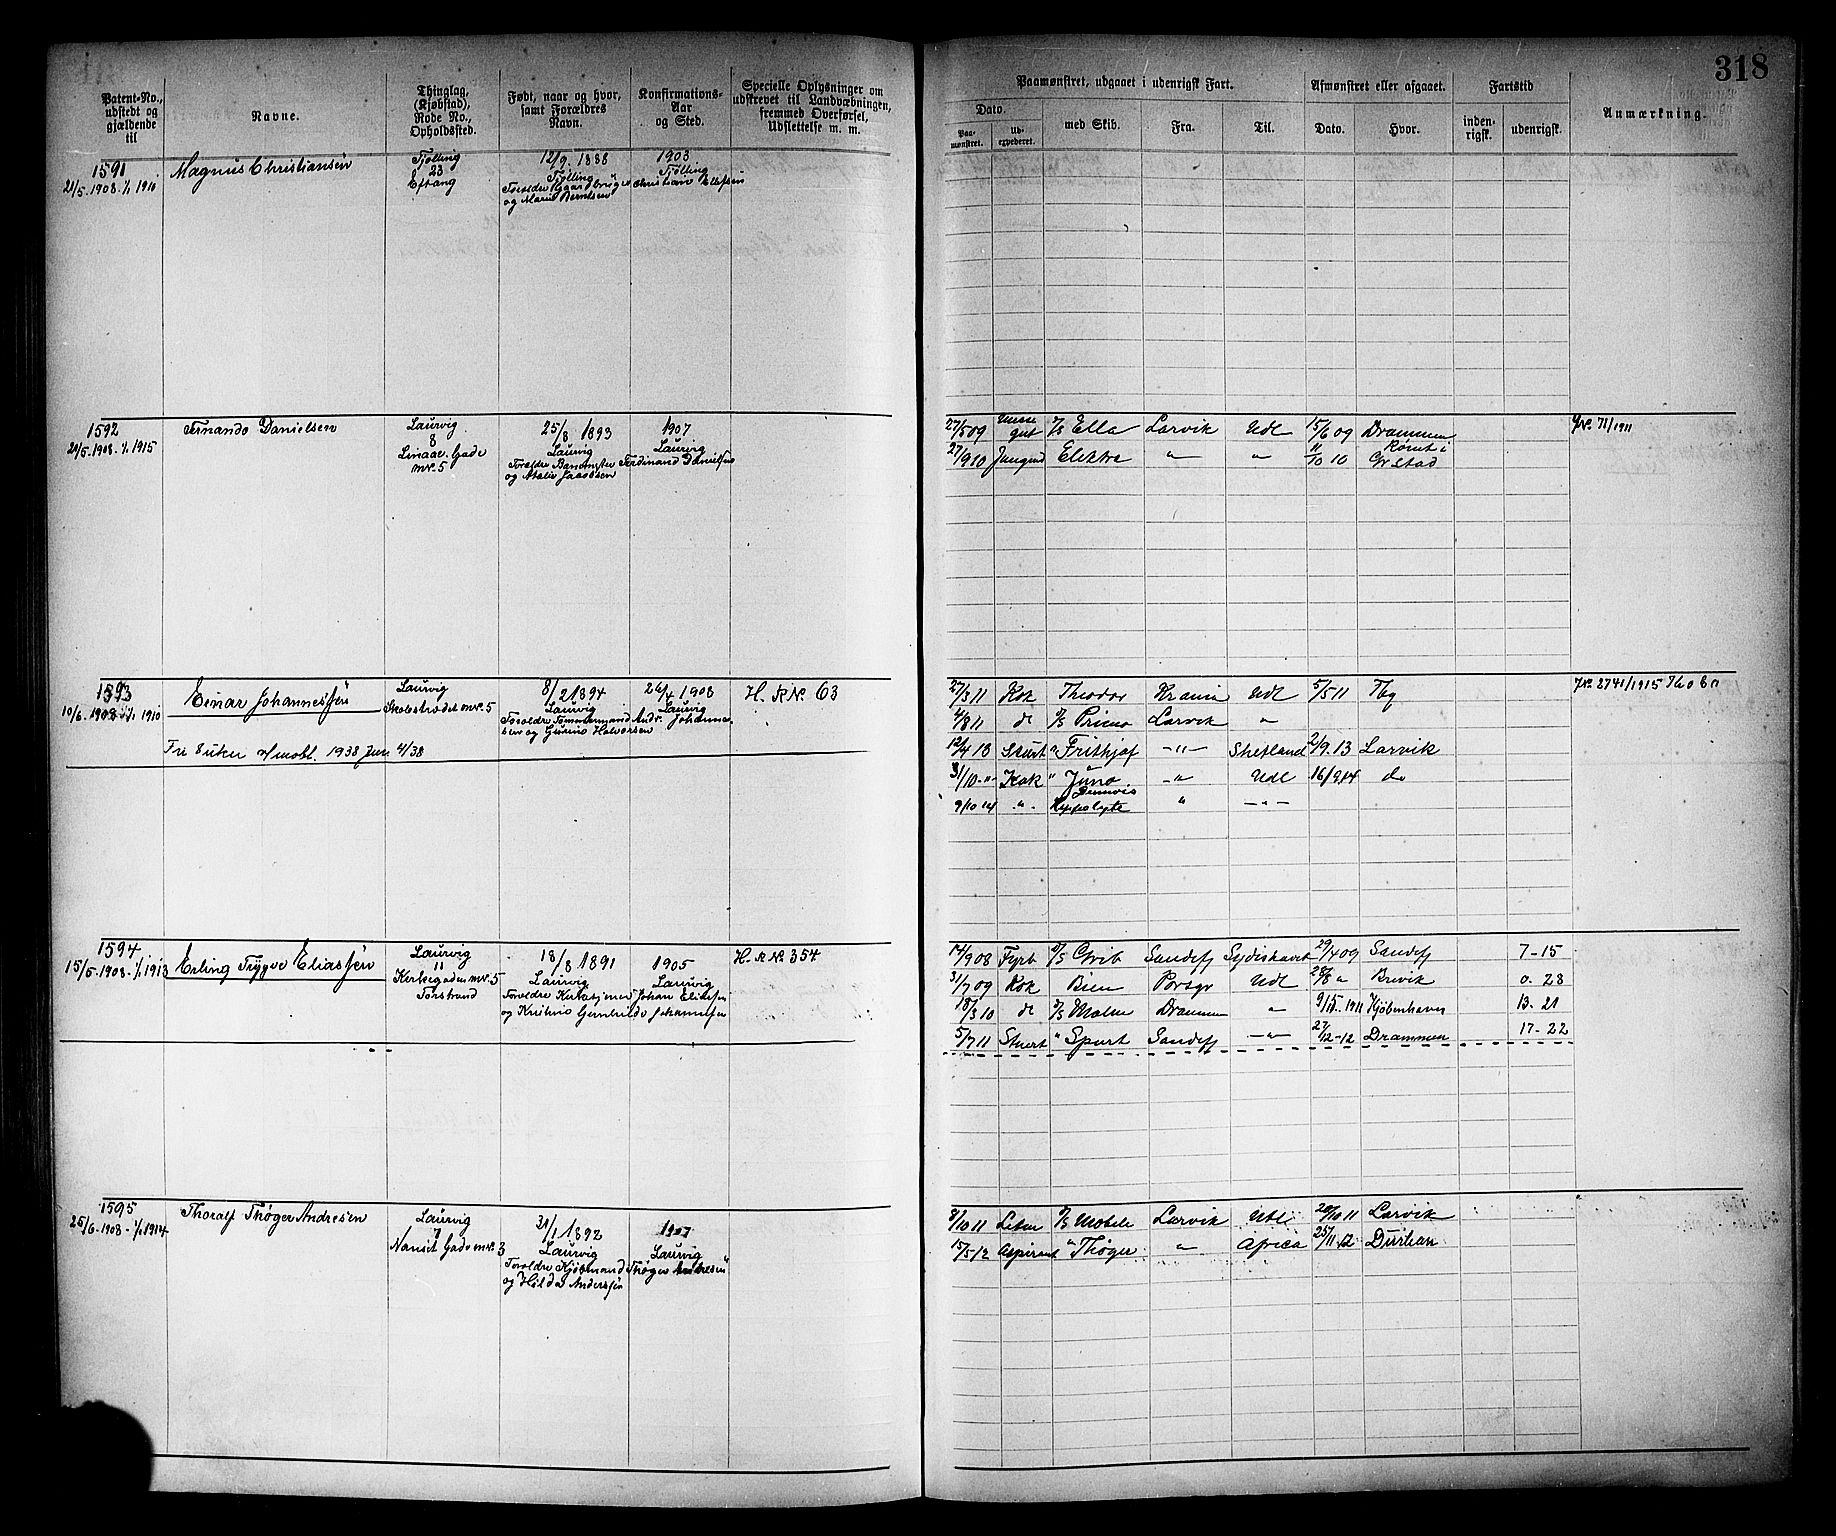 318
Patent-No., udstedt og gjældende til
Navne.
Thinglag, (Kjøbstad), Rode No., Opholdssted.
Født, naar og hvor, samt Forældres Navn.
Konfirmations-Aar og Sted.
Specielle Oplysninger om udskrevet til Landvæbningen, fremmed Overførsel, Udslettelse m. m.
Paamønstret, udgaaet i udenrigsk Fart.
Dato.
Paamønstret.
Udexpederet.
med Skib.
Fra.
Til.
Afmønstret eller afgaaet.
Dato.
Hvor.
Fartstid
indenrigsk.
udenrigsk.
Anmærkning.
1591
21/5.1908.1/1 1910
Magnus Christiansen
Tjølling
23
Eftang
12/9. 1888
Tjølling
Forældre Gaardbruger Christian Ellefsen
og Maren Berntsen
1903
Tjølling
1592
21/5.1908.1/1.1915
Fernando Danielsen
Laurvig
8
Linaae Gade
mr. 5
25/8 1893
Laurvig
Forældre Ferdinand Danielsen
1907
Laurvig
27/5 09 gut D/S Ella Larvik Udl 15/6 09 Drammen
27/9 10 Jungmd Elektra " " 11/10 10 Rømt i
Grstad
JNo 71/1911
1593
10/6.1908 1/1 1910
Einar Johannessen
Laurvig
mr. 5
8/2 1894
Laurvig
Forældre Tømmermand Andr. Johannessen og Halvorsen
26/4 1908
Laurvig
H. R No. 63
4/38
27/3 11 Kok Theodor Krania Udl 5/5 11 Tbg
4/8 11 do D/S Primo Larvik "
12/4 13 Stuert " Frithjof -"- Shetland 2/9.13 Larvik
31/10-" Kok " Juno -"- Udl 16/9 14 do
9/10 14 " " " -"-
JNo 2741/1915
1594
15/5.1908.1/1 1913
Erling Trygve Eliassen
Laurvig
11
Kirkegaden mr. 5
Torstrand
18/8 1891
Laurvig
Forældre Johan Eliassen
og Johannesen
1905
Laurvig
H. R No 354
14/9 08 Fyrb D/S Grib Sandefj Sydishavet 29/4 09 Sandefj 7-15
31/7 09 Kok Bien Porsgr Udl 28/8 " Brevik 0.28
18/3 10 do D/S Malm Drammen " 9/15.1911 Kjøbenhavn 13-21
5/7 11 Stuert " Spurt Sandefj -"- 27/12-12 Drammen 17-22
1595
25/6.1908.-1/1 1914
Thoralf Thøger Andresen
Laurvig
7
Nansit Gade mr. 3
31/1 1892
Laurvig
Forældre Kjøbmand Thøger Andresen
og Hilda Anderssen
1907
Laurvig
8/10 11 D/S Mobile Larvik Udl 20/10 11 Larvik
15/5-12 Aspirant " Thøger " Africa 25/11 12 Durban